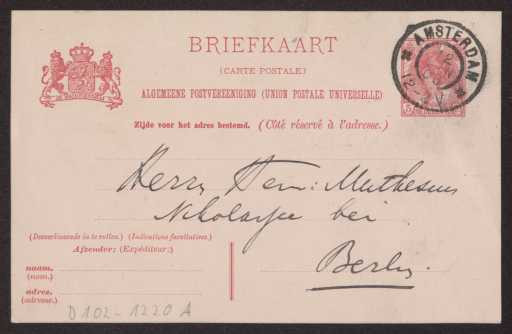 BRIEFKAART
(CARTE POSTALE)
ALGEMEENE POSTVEREENIGING (UNION POSTALE UNIVERSELLE)
Zijde voor het adres bestemd. (Côté réservé à l'adresse.)
AMSTERDAM
Herrn Herm: Muthesius
bei
Berlin.
(Desverkiezende in te vullen.) (Indications facultatives.)
Afzender: (Expéditeur:)
naam.
(nom.)
adres.
(adresse.)
D 102-1220 A